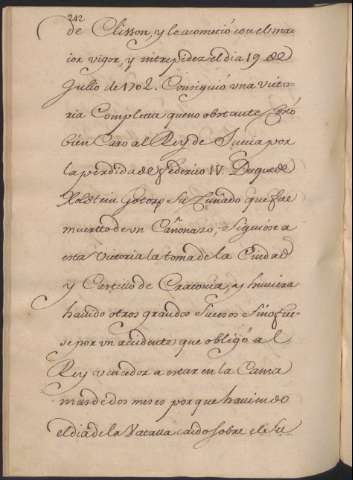 242
de Clisson, y le acometió con el ma-
ior vigor, y intrepidez el dia 19 de
Julio de 1702. Consiguió una Victo-
ria Completa que no obstante Costó
bien Caro al Rey de Suecia por
la perdida de Federico IV Duque de
Holstein Gotorp Su Cuñado que fue
muerto de un Cañonazo, Siguiose a
esta Victoria la toma de la Ciudad
y Castillo de Cracovia, y huviera
havido otros grandes Sucesos Sino fue-
se por un accidente que obligó a el
Rey vencedor a estar en la Cama
mas de dos meses por que haviendo
el dia de la Batalla caido sobre el Su